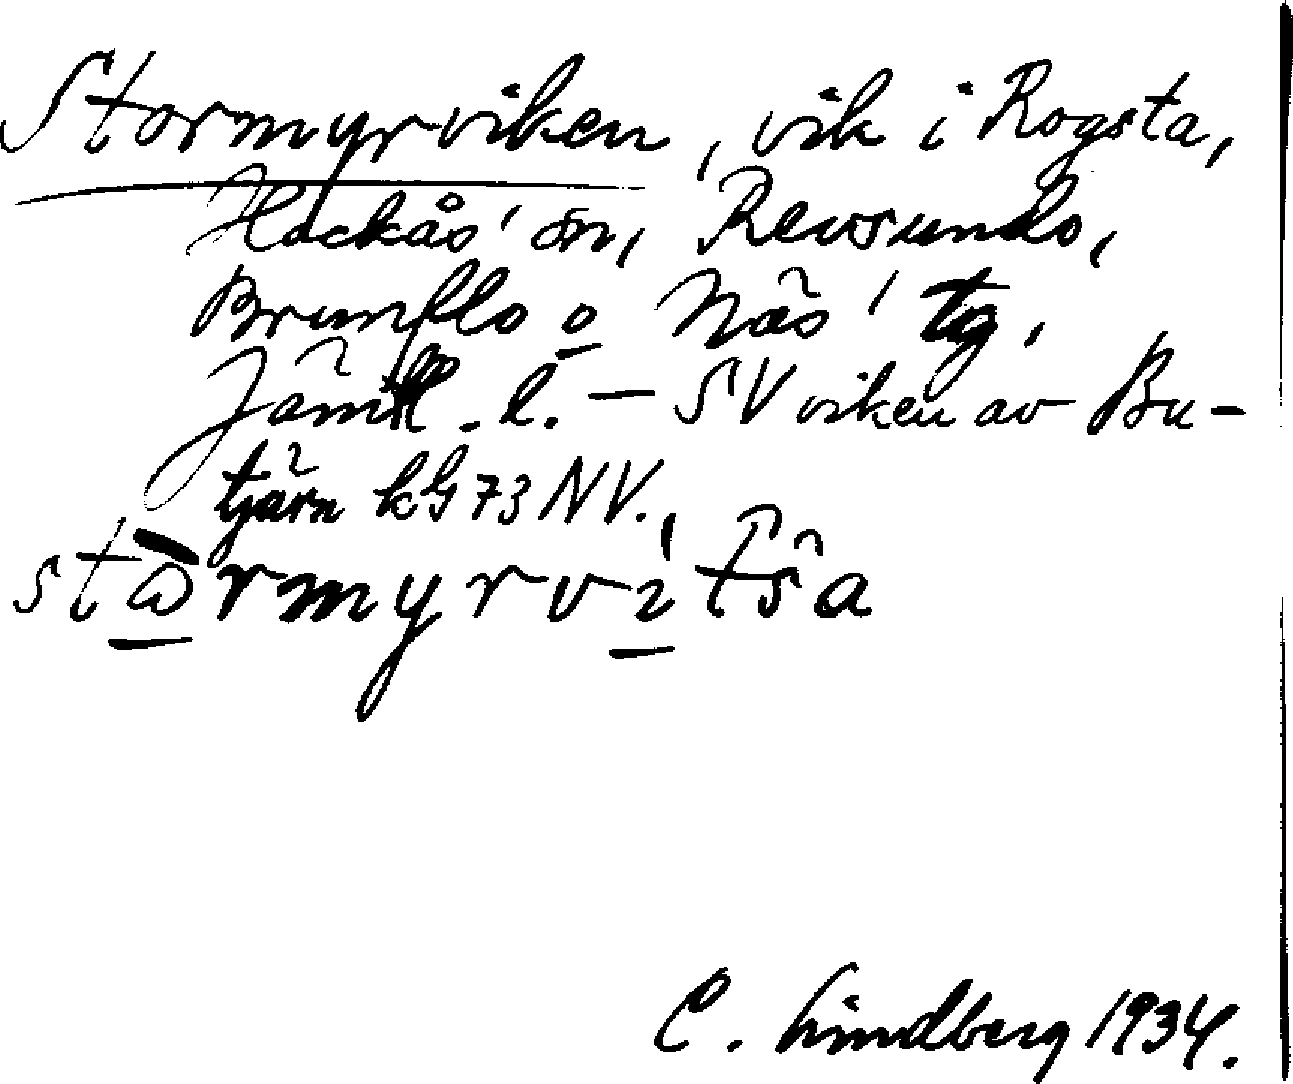 Stormyrviken, vik i Rogsta,
Hackås' sn, Revsunds,
Brunflo o Näs' tg,
Jämtl. l. – SV viken av Bu-
tjärn kG73NV.
stòrmyrvìtša
C. Lindberg 1934.